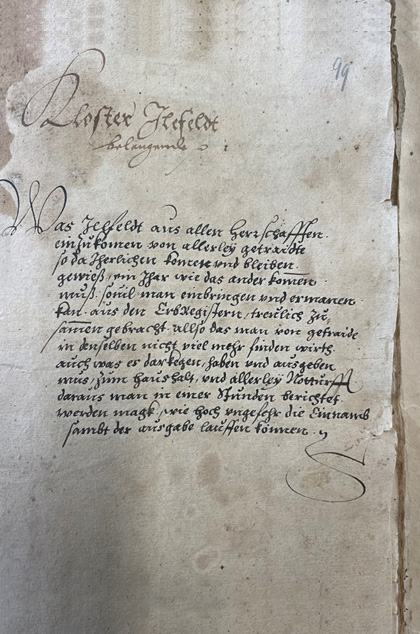 99
Kloster Ilefeldt
belangende
Was Ilefeldt aus allen Herrschafften
einzukomen von allerley getraidte
so da Jherlichen komete vnd bleiben
gewieß, ein Jhar wie das ander komen
muß. souil man einbringen vnd ermanen
kan. aus den ErbRegistern, treulich zu
samen gebracht. Allso das man von getraide
in denselben nicht viel mehr finden wirth
auch was es dargegen, haben vnd ausgeben
mus, zum haushalt, vnd allerley Notturfft
daraus man in einer Stunden berichtet
werden magk, wie hoch vngefehr die Einnamb
sambt der ausgabe lauffen können.